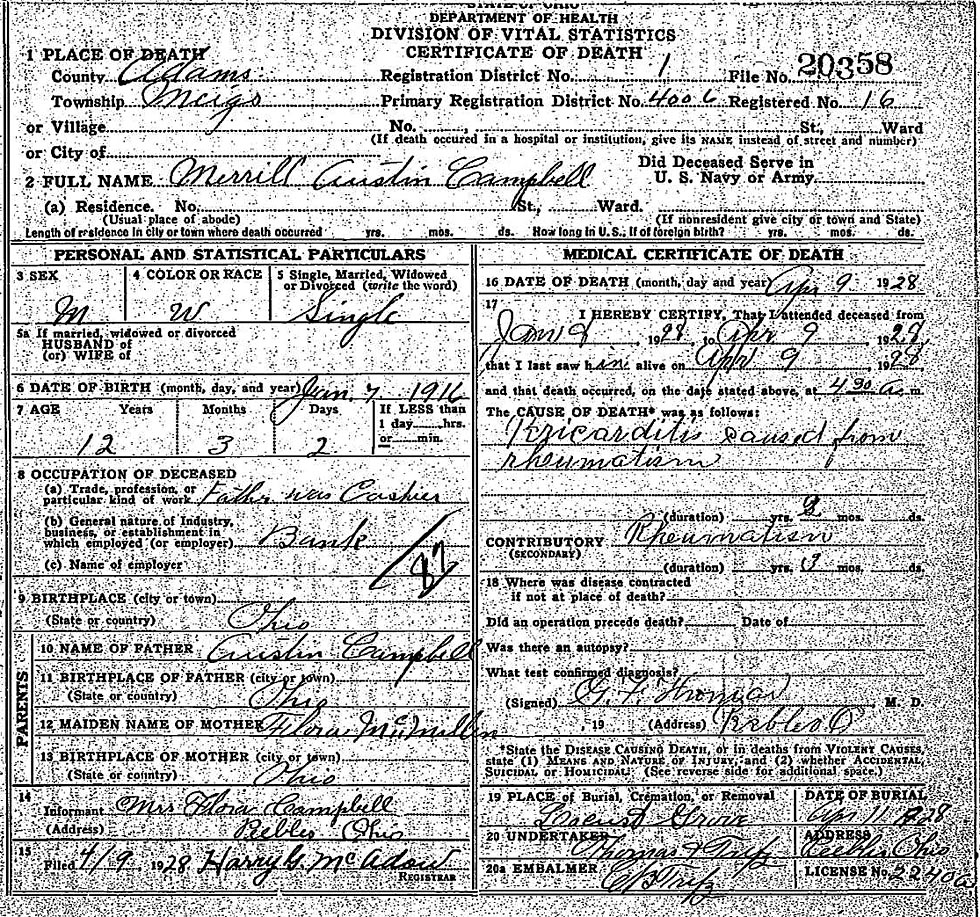 STATE OF OHIO
DEPARTMENT OF HEALTH
DIVISION OF VITAL STATISTICS
CERTIFICATE OF DEATH
1 PLACE OF DEATH
County Adams Registration District No. 1 File No. 20358
Township Meigs Primary Registration District No. 4006 Registered No. 16
or Village No. St., Ward
(If death occured in a hospital or institution, give its NAME instead of street and number)
or City of
2 FULL NAME Merrill Austin Campbell Did Deceased Serve in U. S. Navy or Army
(a) Residence. No. St., Ward.
(Usual place of abode) (If nonresident give city or town and State)
Length of residence in city or town where death occurred yrs. mos. ds. How long in U.S., if of foreign birth? yrs. mos. ds.
PERSONAL AND STATISTICAL PARTICULARS
3 SEX 4 COLOR OR RACE 5 Single, Married, Widowed
or Divorced (write the word)
M W Single
5a If married, widowed or divorced
HUSBAND of
(or) WIFE of
6 DATE OF BIRTH (month, day, and year) Jan. 7 1916
7 AGE Years Months Days If LESS than
1 day hrs.
or min.
12 3 2
8 OCCUPATION OF DECEASED
(a) Trade, profession, or
particular kind of work Father was Cashier
(b) General nature of Industry,
business, or establishment in
which employed (or employer) Bank
(c) Name of employer
87
9 BIRTHPLACE (city or town)
(State or country) Ohio
PARENTS
10 NAME OF FATHER Austin Campbell
11 BIRTHPLACE OF FATHER (city or town)
(State or country) Ohio
12 MAIDEN NAME OF MOTHER Flora McMillen
13 BIRTHPLACE OF MOTHER (city or town)
(State or country) Ohio
14
Informant Mrs Flora Campbell
(Address) Peebles Ohio
15
Filed 4/9 1928 Harry G. McAdow
REGISTRAR
MEDICAL CERTIFICATE OF DEATH
16 DATE OF DEATH (month, day and year) Apr 9 1928
17
I HEREBY CERTIFY, That I attended deceased from
1928, to Apr 9 1928,
that I last saw him alive on Apr 9 1928
and that death occurred, on the date stated above, at 4 30 a. m.
The CAUSE OF DEATH* was as follows:
Pericarditis caused from
rheumatism
(duration) yrs. mos. ds.
CONTRIBUTORY Rheumatism
(SECONDARY)
(duration) yrs. 3 mos. ds.
18 Where was disease contracted
if not at place of death?
Did an operation precede death? Date of
Was there an autopsy?
What test confirmed diagnosis?
(Signed) G. F. Thomas M. D.
, 19 (Address) Peebles O
*State the DISEASE CAUSING DEATH, or in deaths from VIOLENT CAUSES,
state (1) MEANS AND NATURE OF INJURY, and (2) whether ACCIDENTAL,
SUICIDAL or HOMICIDAL. (See reverse side for additional space.)
19 PLACE of Burial, Cremation, or Removal DATE OF BURIAL
Locust Grove Apr 11 1928
20 UNDERTAKER ADDRESS
Thomas & Peebles Ohio
20a EMBALMER LICENSE No. 2240a